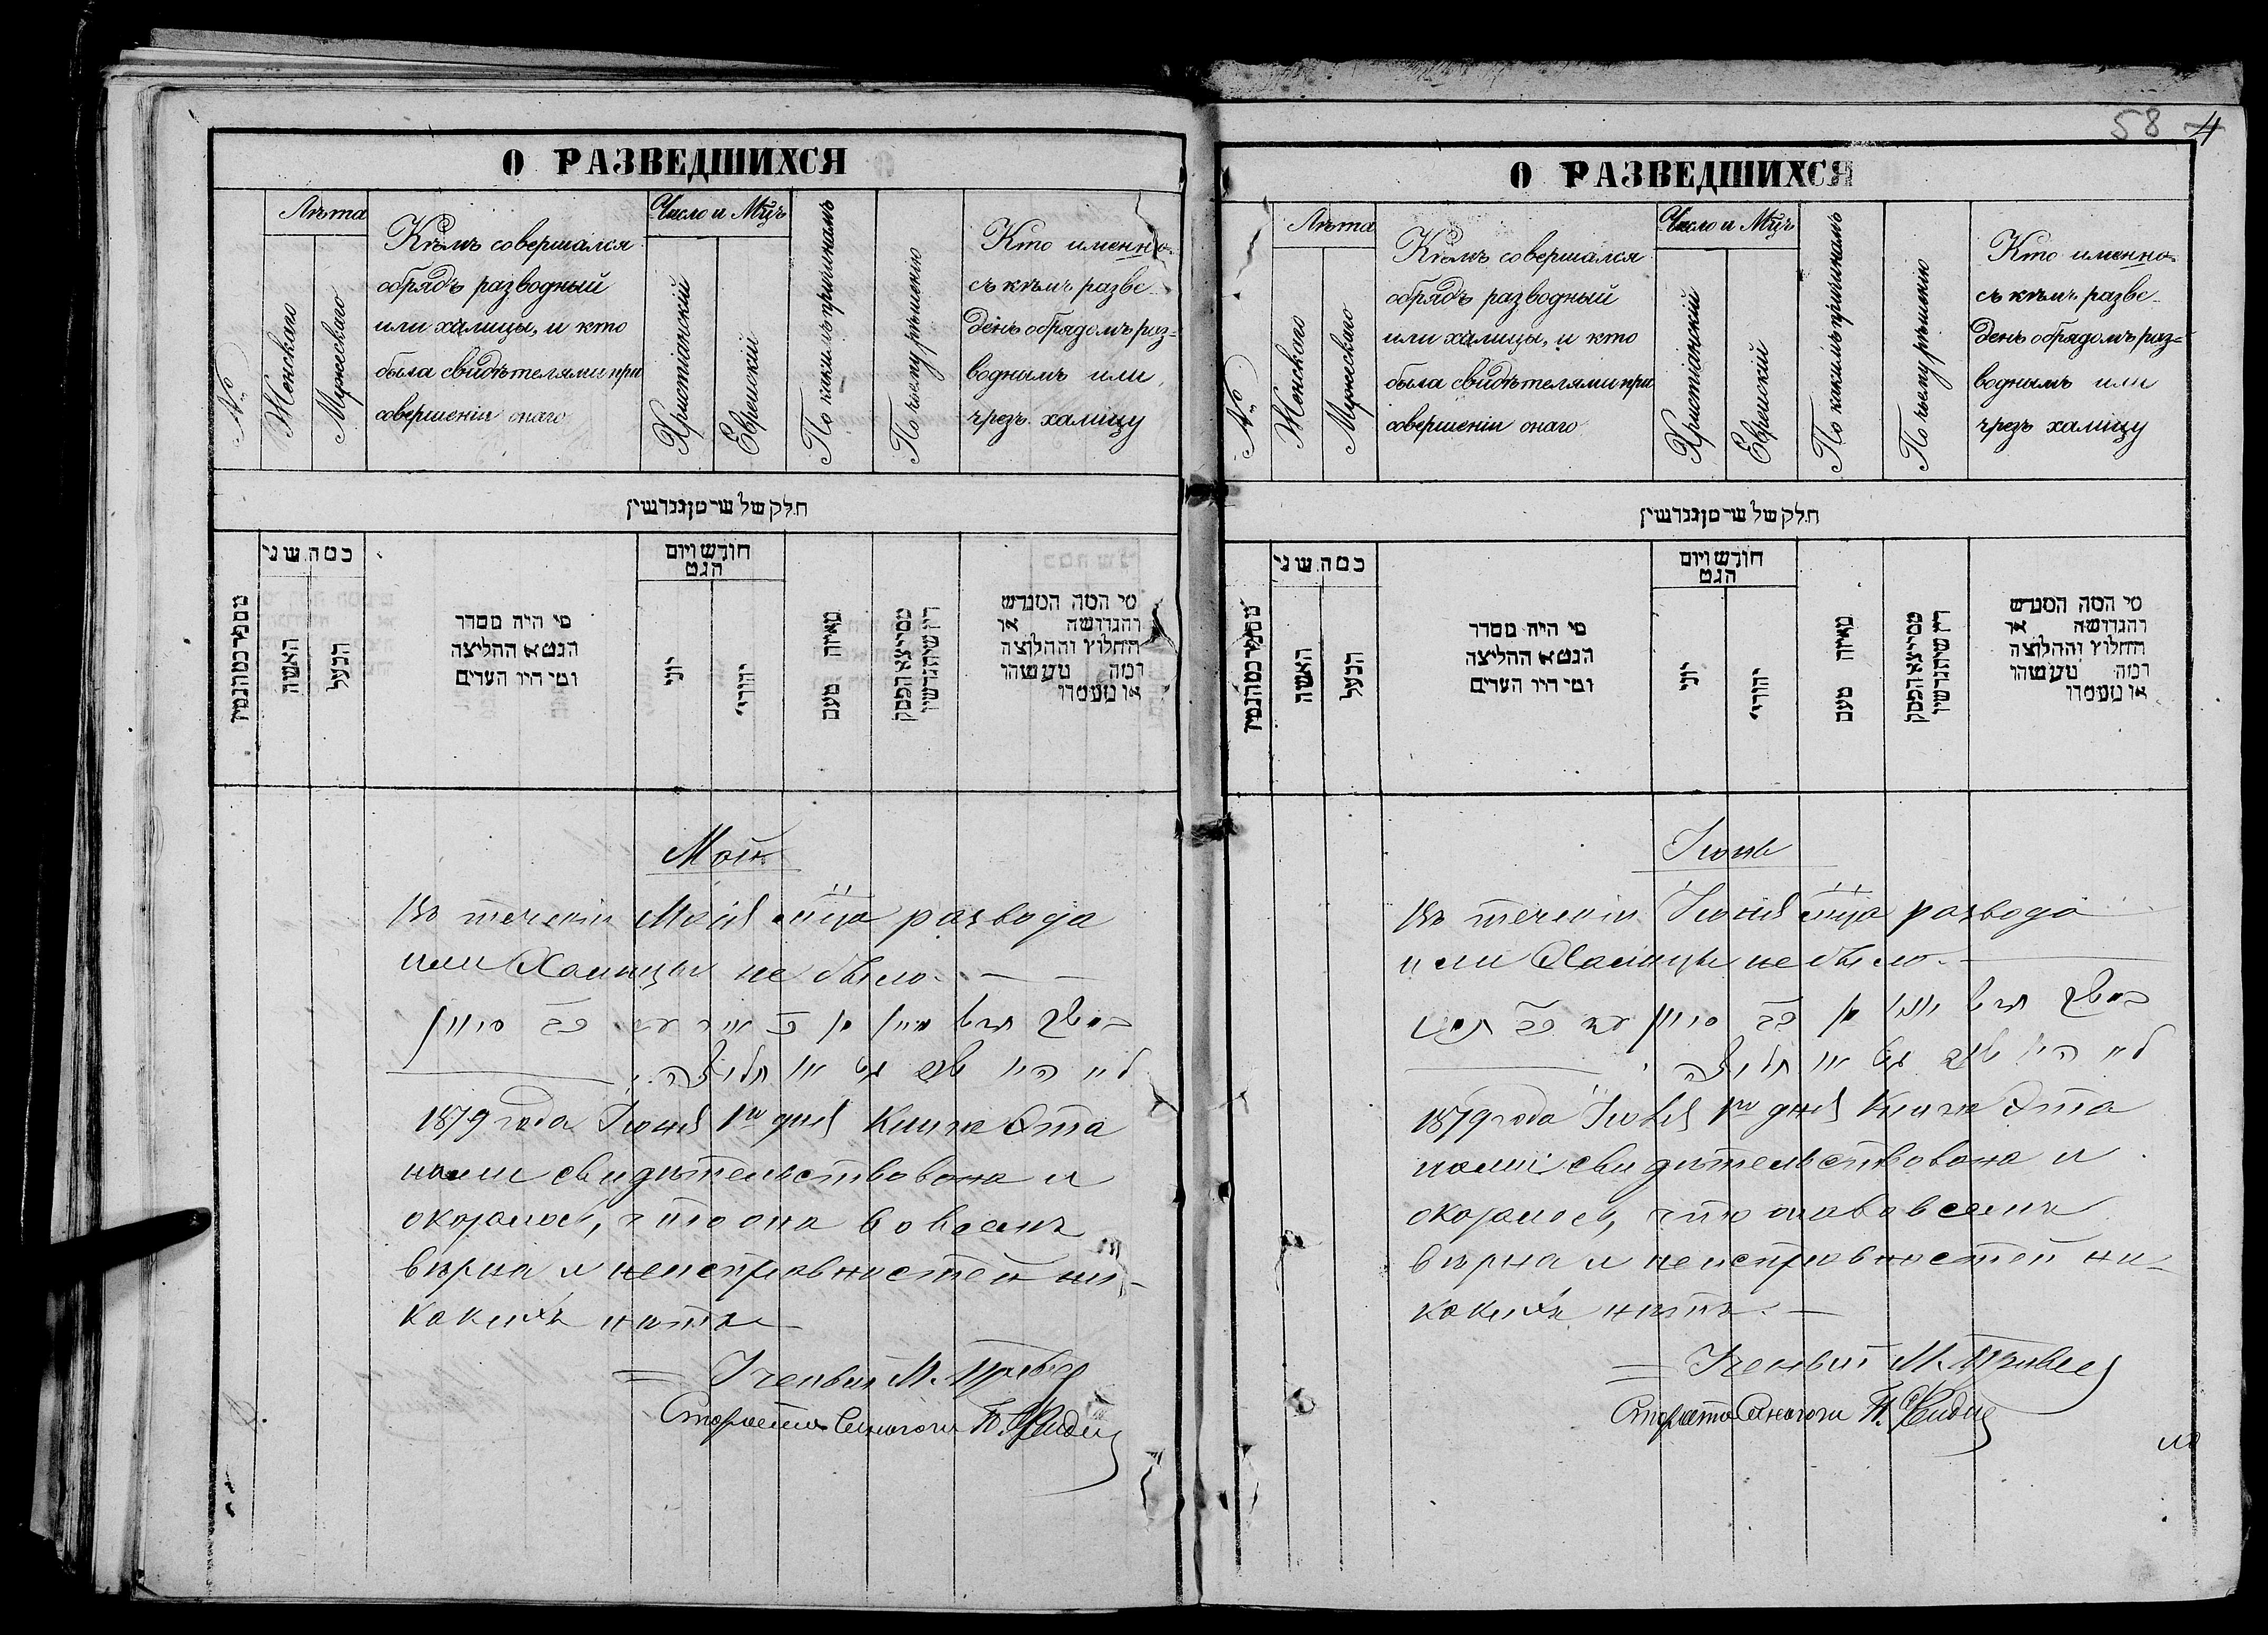 О РАЗВЕДШИХСЯ
№
Лѣта
Женскаго
Мужескаго
Кѣмъ совершался
обрядъ разводный
или халицы, и кто
была свидѣтелями при
совершеніи онаго
Число и Мцъ
Христіанскій
Еврейскій
По какимъ причинамъ
По чьему рѣшенію
Кто именно
съ кѣмъ разве-
денъ обрядомъ раз-
воднымъ или
чрезъ халицу
חלק של שר מן גורשין
כמה שני
האשה
הבעל
מי היה מסדר
הגט א החליצה
ומי היו העדים
חודש ויום
הגט
יוני
יהודי
מאיזה טעם
מי המה המגרש
והגרושה או
החלוץ והחלוצה
ומה נעשהו
או נעמדו
Май
Въ теченіи Маія мца развода
или Халицы не было.
לא היו שום גט או חליצה
1879 года Іюня 1го дня Книга Эта
нами свидѣтельствована и
оказалось, что она во всемъ
вѣрна и неисправностей ни-
какихъ нѣтъ
Ученый М.
Староста Синагоги
58 4
О РАЗВЕДШИХСЯ
№
Лѣта
Женскаго
Мужескаго
Кѣмъ совершался
обрядъ разводный
или халицы, и кто
была свидѣтелями при
совершеніи онаго
Число и Мцъ
Христіанскій
Еврейскій
По какимъ причинамъ
По чьему рѣшенію
Кто именно
съ кѣмъ разве-
денъ обрядомъ раз-
воднымъ или
чрезъ халицу
חלק של שר מן גורשין
כמה שני
האשה
הבעל
מי היה מסדר
הגט א החליצה
ומי היו העדים
חודש ויום
הגט
יוני
יהודי
מאיזה טעם
מי המה המגרש
והגרושה או
החלוץ והחלוצה
ומה נעשהו
או נעמדו
Іюнь
Въ теченіи Іюня мца развода
или Халицы не было.
לא היו שום גט או חליצה
1879 года 1го дня Книга Эта
нами свидѣтельствована и
оказалось, что она во всемъ
вѣрна и неисправностей ни-
какихъ нѣтъ.
Ученый М.
Староста Синагоги